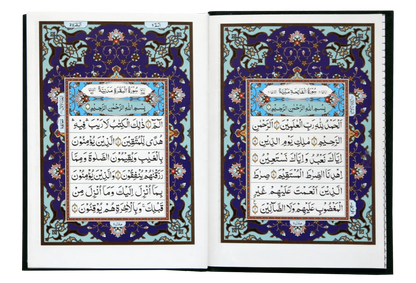 سُورَةُ الفَاتِحَةِ مَكِّيَّةٌ
بِسْمِ اللّٰهِ الرَّحْمٰنِ الرَّحِيمِ
اَلْحَمْدُ لِلّٰهِ رَبِّ الْعٰلَمِينَ اَلرَّحْمٰنِ
الرَّحِيمِ مٰلِكِ يَوْمِ الدِّينِ
اِيَّاكَ نَعْبُدُ وَ اِيَّاكَ نَسْتَعِينُ
اِهْدِنَا الصِّرَاطَ الْمُسْتَقِيمَ صِرَاطَ
الَّذِينَ اَنْعَمْتَ عَلَيْهِمْ غَيْرِ
الْمَغْضُوبِ عَلَيْهِمْ وَلَا الضَّالِّينَ
سُورَةُ البَقَرَةِ مَدَنِيَّةٌ
بِسْمِ اللّٰهِ الرَّحْمٰنِ الرَّحِيمِ
الٓمٓ ذٰلِكَ الْكِتٰبُ لَا رَيْبَ فِيهِ
هُدًى لِلْمُتَّقِينَ اَلَّذِينَ يُؤْمِنُونَ
بِالْغَيْبِ وَيُقِيمُونَ الصَّلٰوةَ وَمِمَّا
رَزَقْنٰهُمْ يُنْفِقُونَ وَالَّذِينَ يُؤْمِنُونَ
بِمَا اُنْزِلَ اِلَيْكَ وَمَا اُنْزِلَ مِنْ
قَبْلِكَ وَبِالْاٰخِرَةِ هُمْ يُوقِنُونَ